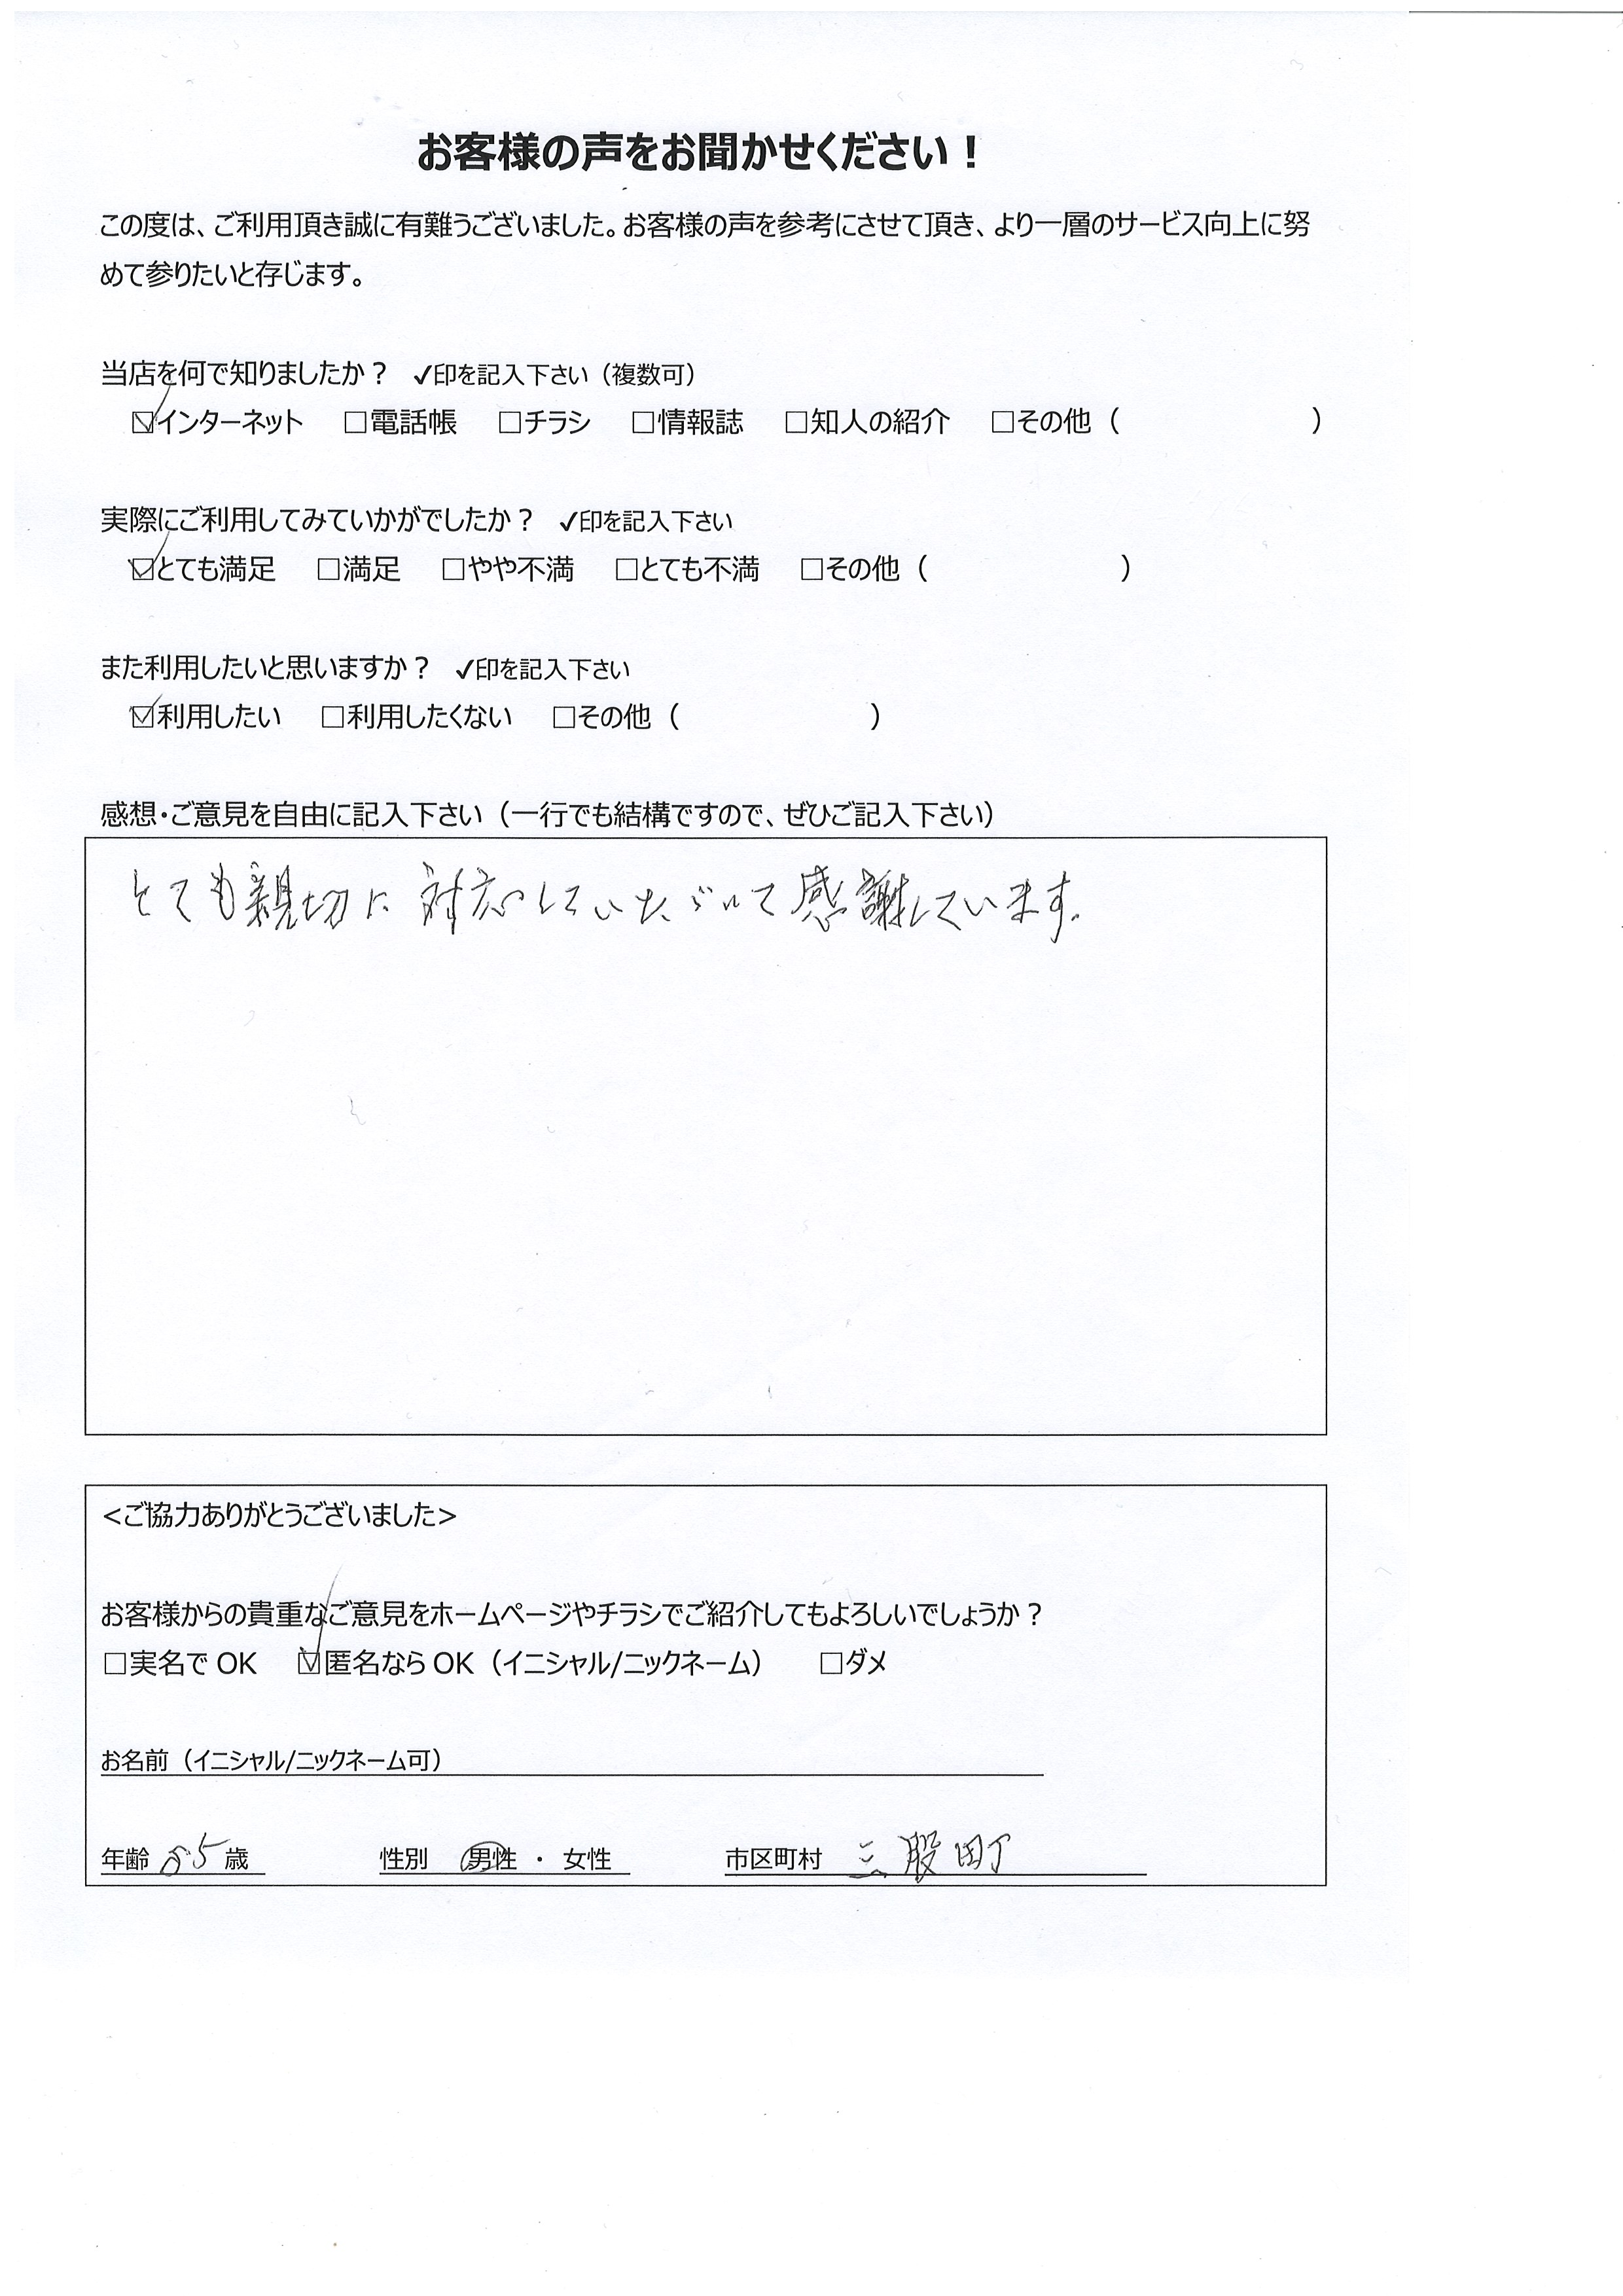 お客様の声をお聞かせください！
この度は、ご利用頂き誠に有難うございました。お客様の声を参考にさせて頂き、より一層のサービス向上に努
めて参りたいと存じます。
当店を何で知りましたか？ ✓印を記入下さい（複数可）
☑インターネット □電話帳 □チラシ □情報誌 □知人の紹介 □その他（ ）
実際にご利用してみていかがでしたか？ ✓印を記入下さい
☑とても満足 □満足 □やや不満 □とても不満 □その他（ ）
また利用したいと思いますか？ ✓印を記入下さい
☑利用したい □利用したくない □その他（ ）
感想・ご意見を自由に記入下さい（一行でも結構ですので、ぜひご記入下さい）
とても親切に対応していただいて感謝しています。
<ご協力ありがとうございました>
お客様からの貴重なご意見をホームページやチラシでご紹介してもよろしいでしょうか？
□実名で OK ☑匿名なら OK（イニシャル/ニックネーム） □ダメ
お名前（イニシャル/ニックネーム可）
年齢 歳 性別 男性 ・ 女性 市区町村 三股町